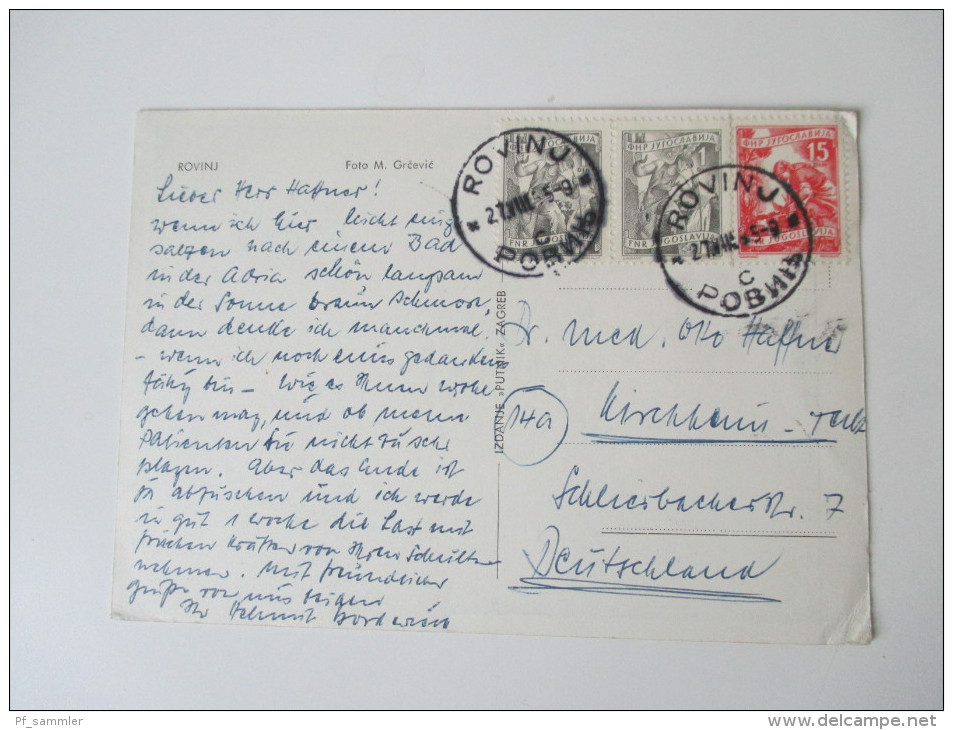 ROVINJ Foto M. Grčević
Lieber Herr Haffner!
wenn ich hier leicht einge
salzen nach einem Bad
in der Adria schön langsam
in der Sonne braun schmore,
dann denke ich manchmal,
– wenn ich noch eines Gedankens
fähig bin – wie es Ihnen wohl
gehen mag, und ob meine
Patienten Sie nicht zu sehr
plagen. Aber das Ende ist
zu abzusehen und ich werde
in gut 1 Woche die Last mit
frischen Kräften von Ihren Schultern
nehmen. Mit freundlichen
Grüße von uns beiden
Ihr Helmut
IZDANJE »PUTNIK« ZAGREB
ФНР ЈУГОСЛАВИЈА
1
FNR JUGOSLAVIJA
ФНР ЈУГОСЛАВИЈА
1
FNR JUGOSLAVIJA
ФНР ЈУГОСЛАВИЈА
15
FNR JUGOSLAVIJA
ROVINJ
5-9
С
РОВИЊ
ROVINJ
5-9
С
РОВИЊ
Dr. med. Otto Haffner
14a Kirchheim - Teck
Schlierbacherstr. 7
Deutschland
Pf_sammler
www.delcampe.net